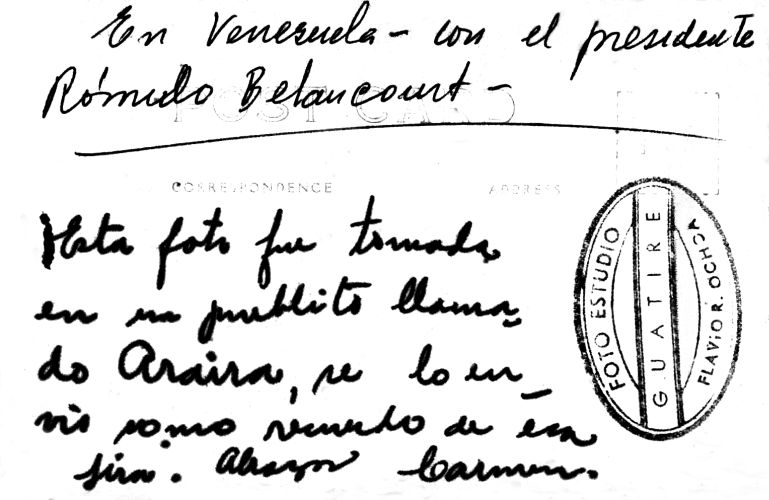 En Venezuela - con el presidente
Rómulo Betancourt -
POST CARD
CORRESPONDENCE
ADDRESS
Esta foto fue tomada
en un pueblito llama-
do Araira, se lo en_
vio como recuerdo de esa
jira. Abrazos Carmen.
FOTO ESTUDIO
GUATIRE
FLAVIO R. OCHOA